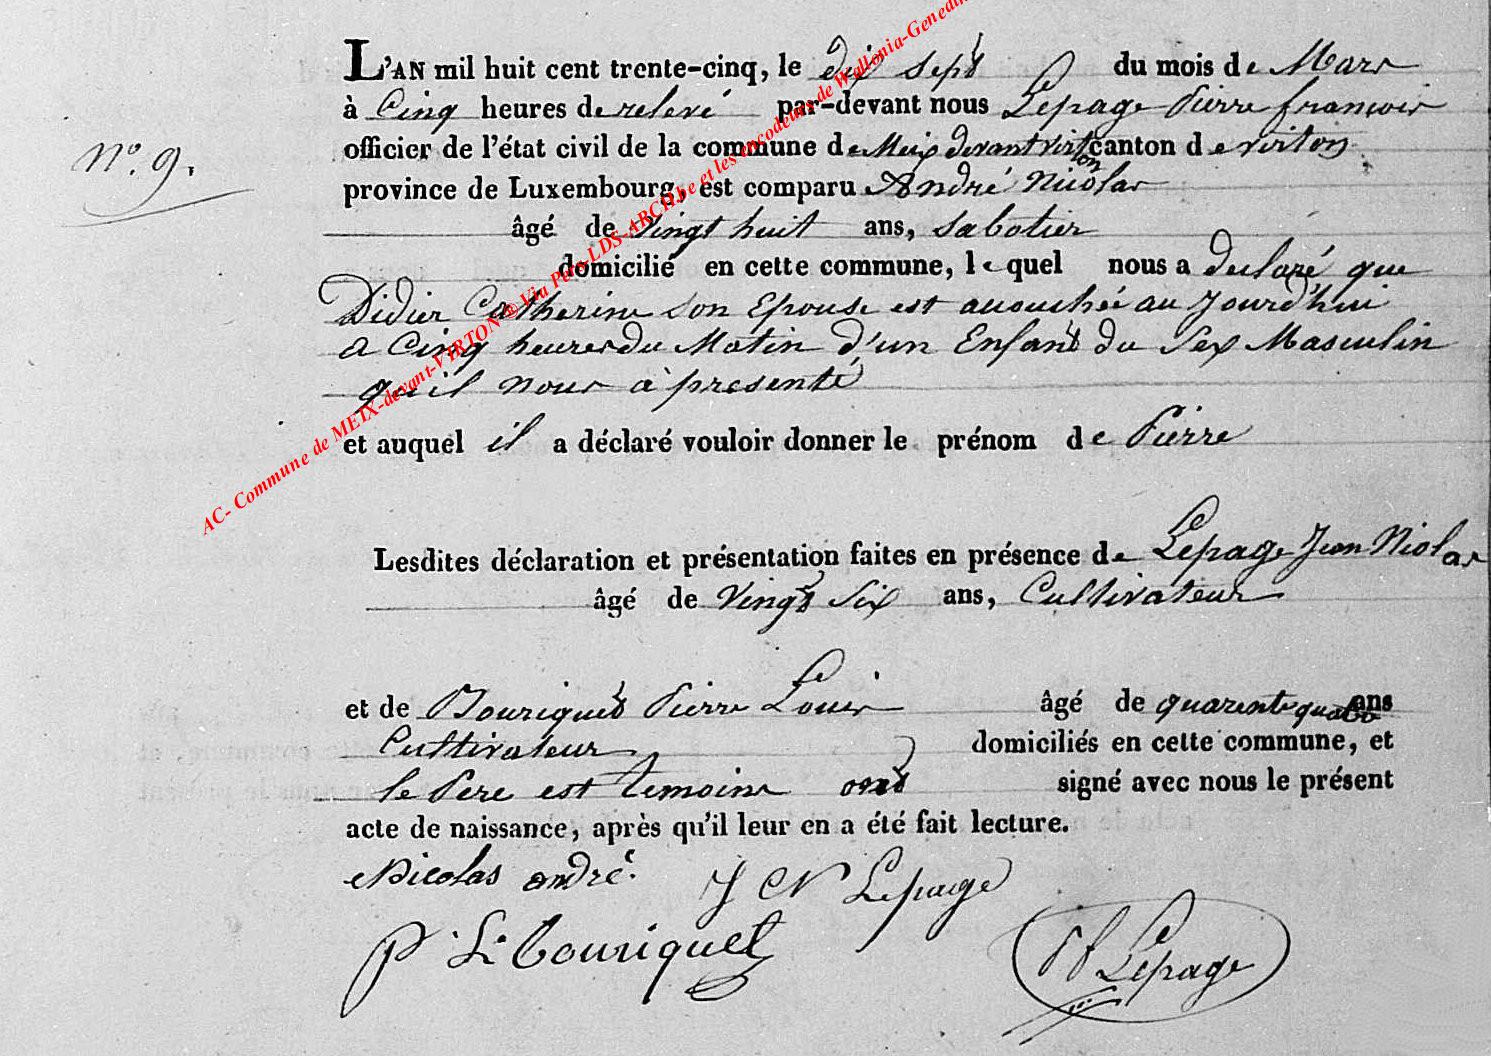 L'AN mil huit cent trente-cinq, le dix sept du mois de Mars
à Cinq heures de relevé par-devant nous Lepage Pierre françois
officier de l'état civil de la commune de Meix devant virton canton de virton
N.o 9.
province de Luxembourg, est comparu André Nicolas
âgé de vingt huit ans, sabotier
domicilié en cette commune, lequel nous a declaré que
Didier Catherine son Epouse est accouchée au jourd'hui
a Cinq heures du Matin d'un Enfant du Sex Masculin
qu'il nous à presenté
et auquel il a déclaré vouloir donner le prénom de Pierre
Lesdites déclaration et présentation faites en présence de Lepage Jean Niolas
âgé de Vingt Six ans, Cultivateur
et de Bouriquet Pierre Louis âgé de quarente quatre ans
Cultivateur domiciliés en cette commune, et
le Pere est temoins ont signé avec nous le présent
acte de naissance, après qu'il leur en a été fait lecture.
Nicolas andré. J CN Lepage
P. L. Bouriquet
Pf Lepage
AC- Commune de MEIX-devant-VIRTON ® Via Pers-LDS-ARCH.be et les encodeurs de Wallonia-Genedin